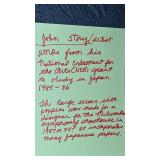 John Story/artist
Works from his
National Endowment for
the Arts (NEA) grant
to study in Japan.
1985-86
This large screen with
poppies was made for a
designer for the Milwaukee
Symphony showhouse in
1987 or 88? It incorporates
many Japanese papers.